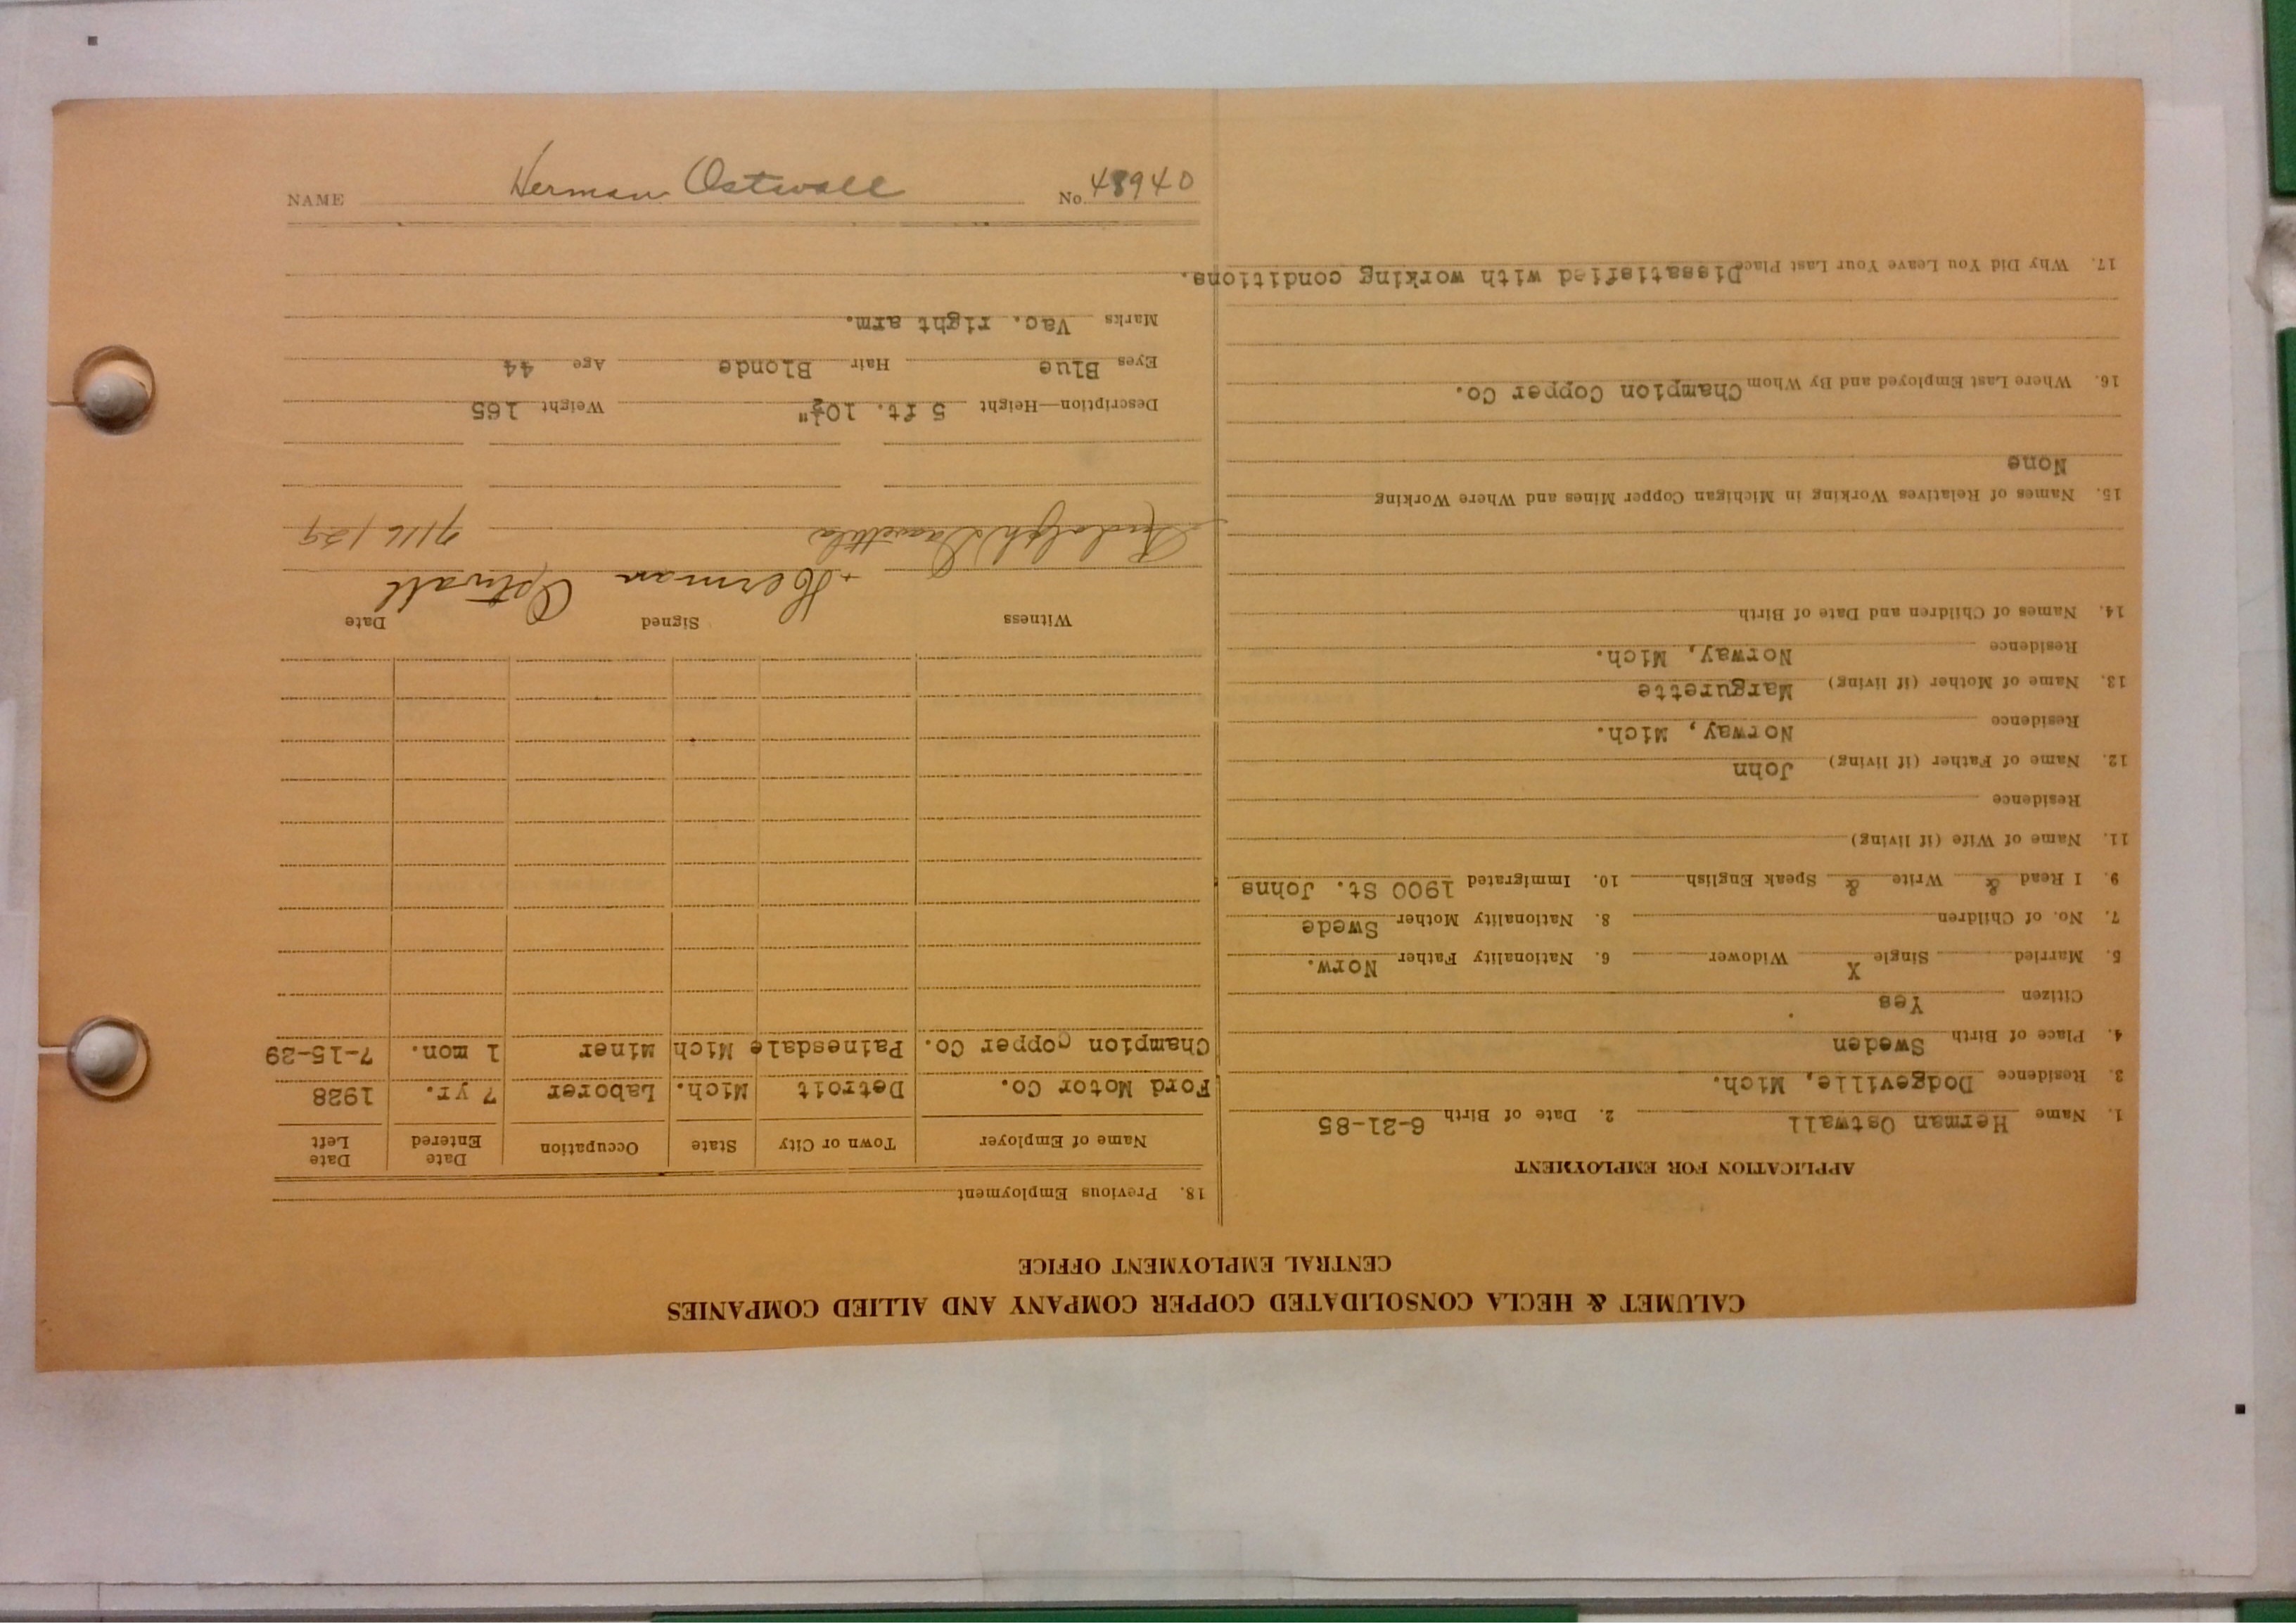 NAME Herman Ostwall No. 48940
CALUMET & HECLA CONSOLIDATED COPPER COMPANY AND ALLIED COMPANIES
CENTRAL EMPLOYMENT OFFICE
APPLICATION FOR EMPLOYMENT
1. Name Herman Ostwall 2. Date of Birth 6-21-85
3. Residence Dodgeville, Mich.
4. Place of Birth Sweden
Citizen Yes
5. Married Single X Widower 6. Nationality Father Norw.
7. No. of Children 8. Nationality Mother Swede
9. I Read & Write & Speak English 10. Immigrated 1900 St. Johns
11. Name of Wife (if living)
Residence
12. Name of Father (if living) John
Residence Norway, Mich.
13. Name of Mother (if living) Margurette
Residence Norway, Mich.
14. Names of Children and Date of Birth
15. Names of Relatives Working in Michigan Copper Mines and Where Working
None
16. Where Last Employed and By Whom Champion Copper Co.
17. Why Did You Leave Your Last Place Dissatisfied with working conditions.
18. Previous Employment
Name of Employer Town or City State Occupation Date Entered Date Left
Ford Motor Co. Detroit Mich. Laborer 7 yr. 1928
Champion Copper Co. Painesdale Mich Miner 1 mon. 7-15-29
Witness Signed Date
Herman Ostwall
Rudolph 7/16/29
Description—Height 5 ft. 10½" Weight 165
Eyes Blue Hair Blonde Age 44
Marks Vac. right arm.